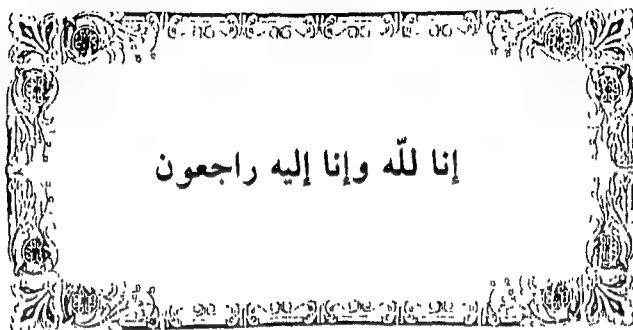 إنا للّه وإنا إليه راجعون